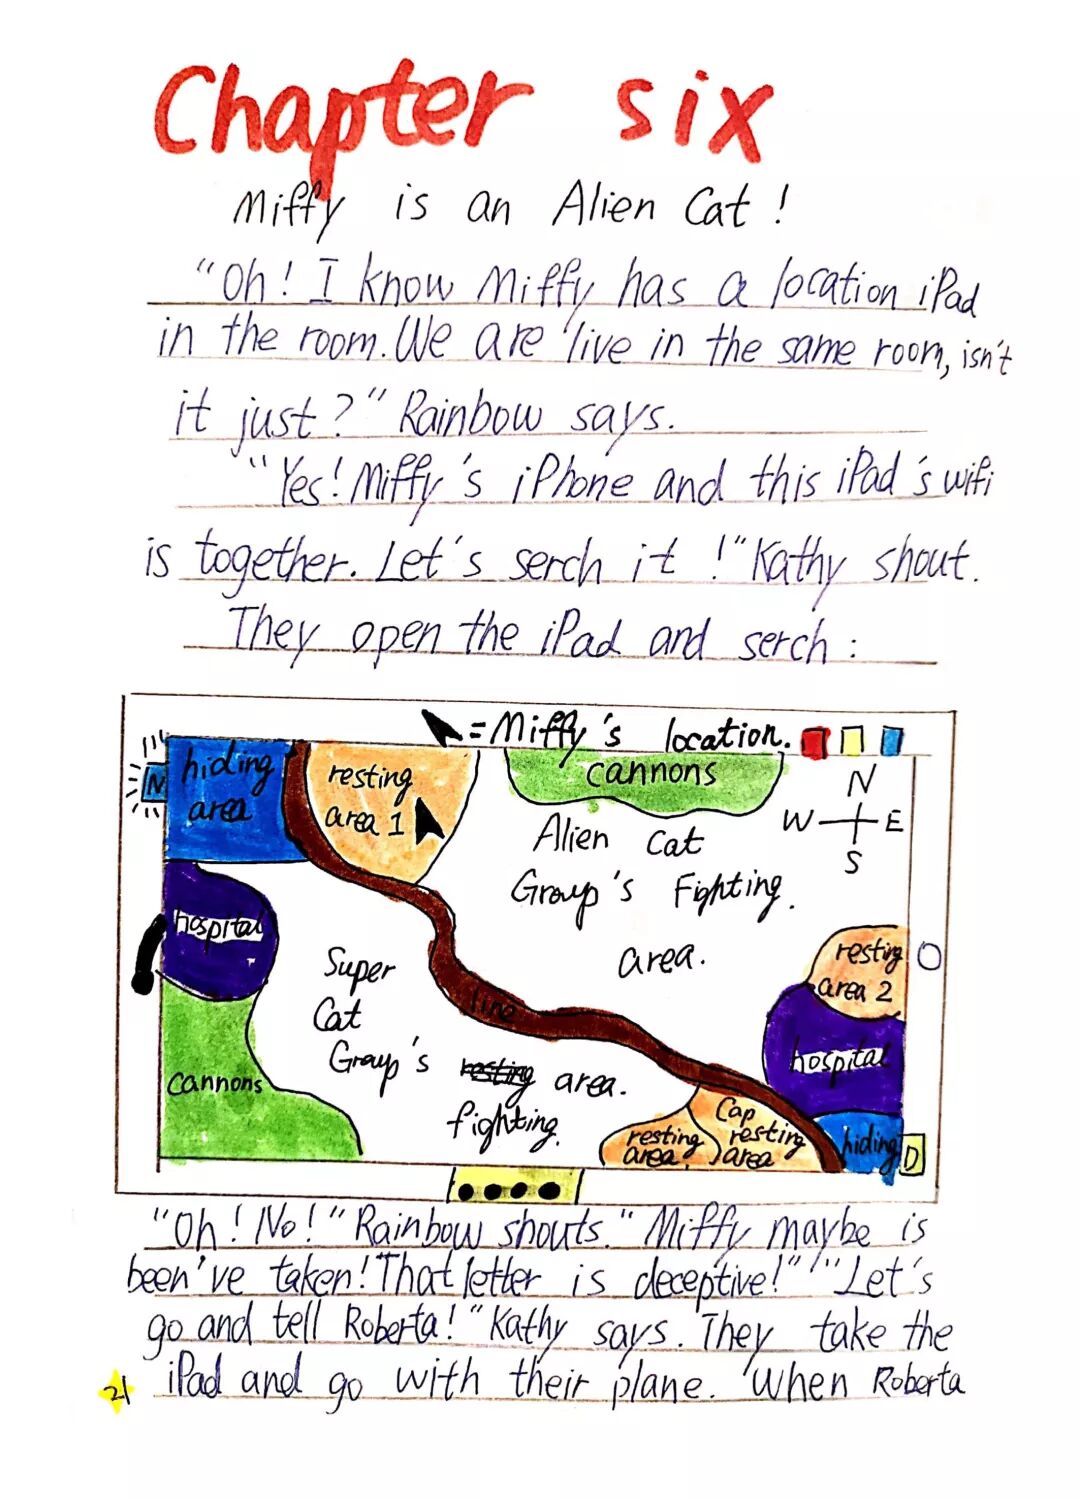 Chapter six
Miffy is an Alien Cat!
"Oh! I know Miffy has a location iPad
in the room. We are live in the same room, isn't
it just?" Rainbow says.
"Yes! Miffy's iPhone and this iPad's wifi
is together. Let's serch it!" Kathy shout.
They open the iPad and serch:
=Miffy's location.
hiding
area
N
resting
area 1
cannons
N
W E
S
Alien Cat
Group's Fighting.
area.
hospital
Super
Cat
Group's resting area.
fighting.
line
resting
area 2
hospital
cannons
resting
area
Cap
resting
area
hiding
D
"Oh! No!" Rainbow shouts. "Miffy maybe is
been've taken! That letter is deceptive!" "Let's
go and tell Roberta!" Kathy says. They take the
iPad and go with their plane. When Roberta
21